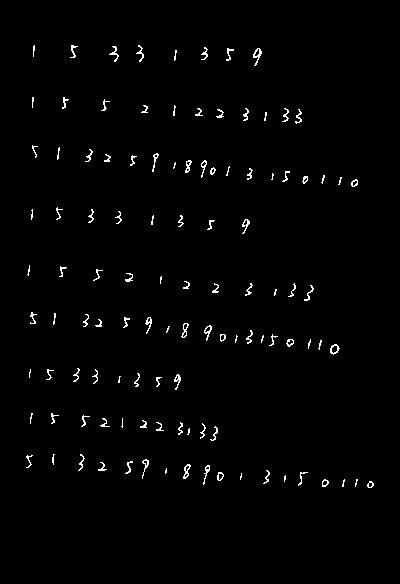 1 5 3 3 1 3 5 9
1 5 5 2 1 2 2 3 1 3 3
5 1 3 2 5 9 1 8 9 0 1 3 1 5 0 1 1 0
1 5 3 3 1 3 5 9
1 5 5 2 1 2 2 3 1 3 3
5 1 3 2 5 9 1 8 9 0 1 3 1 5 0 1 1 0
1 5 3 3 1 3 5 9
1 5 5 2 1 2 2 3 1 3 3
5 1 3 2 5 9 1 8 9 0 1 3 1 5 0 1 1 0